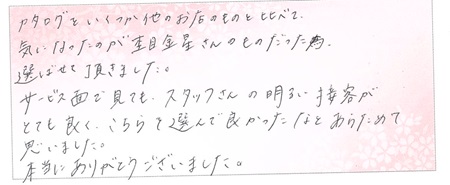 カタログをいくつか他のお店のものと比べて、
気になったのが 金星さんのものだった為、
選ばせて頂きました。
サービス面で見ても、スタッフさんの明るい接客が
とても良く、こちらで選んで良かったなとあらためて
思いました。
本当にありがとうございました。